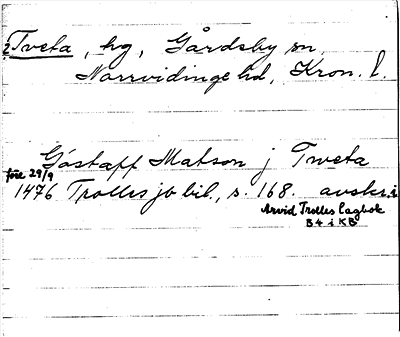 2 Tveta, hg, Gårdsby sn,
Norrvidinge hd, Kron. l.
Göstaff Matson j Tweta
före 29/9
1476 Trolles jb bil., s. 168. avskr. i
Arvid Trolles lagbok
B4 i KB